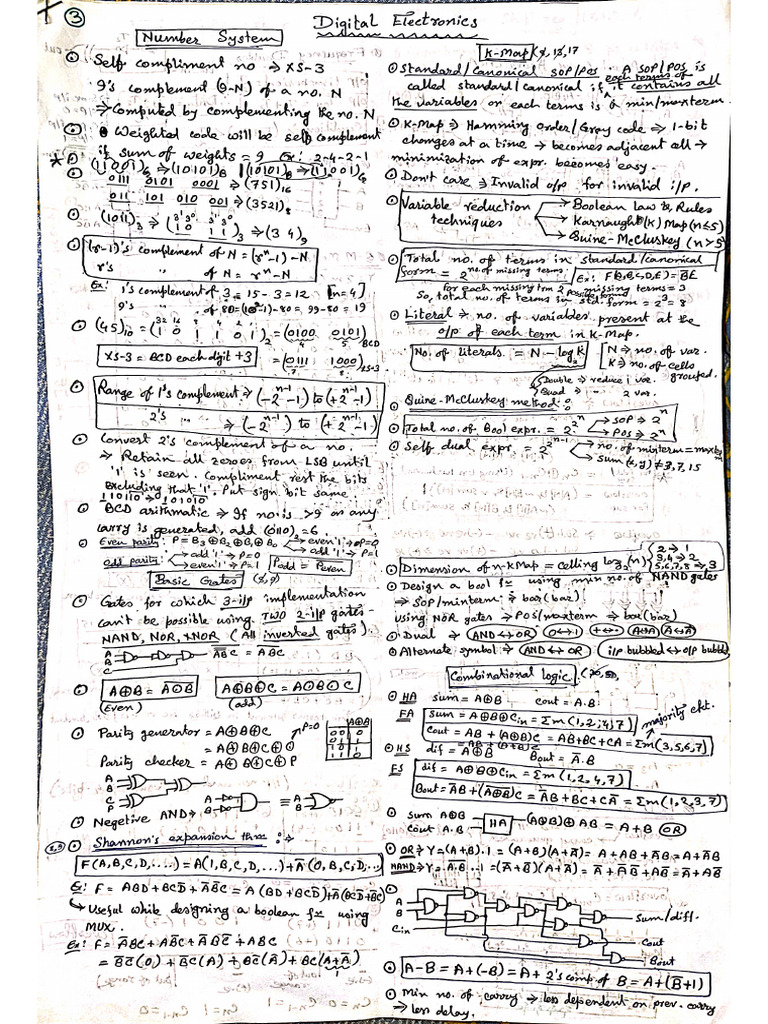 ③
Digital Electronics
Number System
⊙ Self compliment no ⇒ XS-3
9's complement (9-N) of a no. N
⇒ Computed by complementing the no. N
⊙ Weighted code will be self complement
if sum of weights = 9 Ex: 2-4-2-1
0111 0101 0001 ⇒ (751)₁₆
011 101 010 001 ⇒ (3521)₈
(r-1)'s complement of N = (rⁿ-1)-N
r's ,, of N = rⁿ-N
Ex: 1's complement of 3 = 15-3 = 12 [n=4]
9's ,, of 80 = (10²-1)-80 = 99-80 = 19
⊙ (45)₁₀ = (1 0 1 1 0 1)₂ = (0100 0101)BCD
XS-3 = BCD each digit +3 = (0111 1000)XS-3
⊙ Range of 1's complement ⇒ (-2ⁿ⁻¹-1) to (+2ⁿ⁻¹-1)
2's ,, ,, ⇒ (-2ⁿ⁻¹) to (+2ⁿ⁻¹-1)
⊙ Convert 2's complement of a no.
⇒ Retain all zeroes from LSB until
'1' is seen. Compliment rest the bits
excluding that '1'. Put sign bit same
110110 ⇒ 101010
⊙ BCD arithmatic ⇒ If no is >9 or any
carry is generated, add (0110) = 6
⊙ Even parity: P = B₃⊕B₂⊕B₁⊕B₀ even '1' ⇒ P=0
odd '1' ⇒ P=1
odd parity: odd '1' ⇒ P=0
even '1' ⇒ P=1
Podd = P̅even
Basic Gates
⊙ Gates for which 3-i/p implementation
can't be possible using TWO 2-i/p gates-
NAND, NOR, XNOR (All inverted gates)
A
B
C
⊙ A⊕B = A̅⊙B
(Even)
A⊕B⊕C = A⊙B⊙C
(odd)
⊙ Parity generator = A⊕B⊕C
= A⊕B⊕C⊕0
Parity checker = A⊕B⊕C⊕P
P=0
A⊕B
00 0
01 1
10 1
11 0
A
B
C
P
⊙ Negetive AND ⇒ A B ≡ A B
⊙ Shannon's expansion thrm :→
F(A,B,C,D,....) = A(1,B,C,D,...)+A̅(0,B,C,D,...)
Ex: F = ABD+BCD̅+A̅B̅C̅ = A(BD+BCD̅)+A̅(BCD̅+B̅C̅)
↳ Useful while designing a boolean fⁿ using
MUX.
K-Map
⊙ Standard/Canonical SOP/POS : A SOP/POS is
called standard/canonical if each terms of it contains all
the variables or each terms is a min/maxterm.
⊙ K-Map ⇒ Hamming order/Gray code ⇒ 1-bit
changes at a time → becomes adjacent all →
minimization of expr. becomes easy.
⊙ Don't care ⇒ Invalid o/p for invalid i/p.
⊙ Variable reduction
techniques
Boolean law & Rules
Karnaught(K) Map (n≤5)
Quine-McCluskey (n>5)
⊙ Total no. of terms in standard/canonical
form = 2^no. of missing terms
Ex: F(A,B,C,D,E) = B̅E
for each missing trm 2 possibilities missing = 3
So, total no. of terms in std. form = 2³ = 8
⊙ Literal ⇒ no. of variables present at the
o/p of each term in K-Map.
No. of literals = N - log₂K
N ⇒ no. of var.
K ⇒ no. of cells
grouped.
Double ⇒ reduce 1 var.
Quad ⇒ -- 2 var.
⊙ Quine-McCluskey method:
⊙ Total no. of Bool expr. = 2^2ⁿ
SOP ⇒ 2ⁿ
POS ⇒ 2ⁿ
⊙ Self dual expr. = 2^2ⁿ⁻¹
no. of minterm = maxterm
sum(x,y) ≠ 3,7,15
⊙ Dimension of n-KMap = ceiling log₂(n)
2 ⇒ 1
3,4 ⇒ 2
5,6,7,8 ⇒ 3
⊙ Design a bool fⁿ using min no. of NAND gates
⇒ SOP/minterm ⇒ bar(bar)
using NOR gates ⇒ POS/maxterm ⇒ bar(bar)
⊙ Dual ⇒ AND↔OR 0↔1 +↔· A↔A A̅↔A̅
⊙ Alternate symbol ⇒ AND↔OR i/p bubbled↔o/p bubbled
Combinational logic
⊙ HA sum = A⊕B cout = A.B
FA sum = A⊕B⊕Cin = Σm(1,2,4,7)
majority ckt.
Cout = AB+(A⊕B)C = AB+BC+CA = Σm(3,5,6,7)
⊙ HS dif = A⊕B Bout = A̅.B
FS dif = A⊕B⊕Cin = Σm(1,2,4,7)
Bout = A̅B+(A̅⊕B)C = A̅B+BC+CA̅ = Σm(1,2,3,7)
⊙ sum A⊕B
cout A.B HA (A⊕B)⊕AB = A+B OR
⊙ OR ⇒ Y = (A+B)·1 = (A+B)(A+A̅) = A+AB+A̅B = A+A̅B
A
B
Cin
Sum/diff.
Cout
Bout
⊙ A-B = A+(-B) = A+2's comp of B = A+(B̅+1)
⊙ Min no. of carry → less dependent on prev. carry
→ less delay.